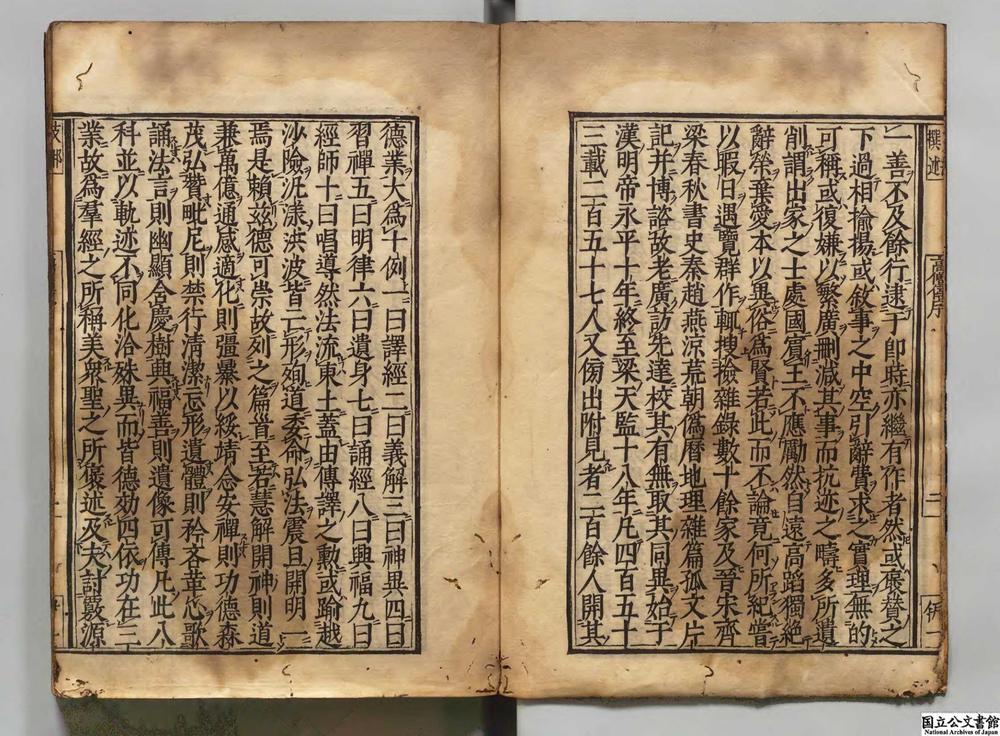 撰述 高僧傳序 二 伊一
一善不及餘行逮于即時亦繼有作者然或褒贊之
下過相揄揚或敘事之中空引辭費求之實理無的
可稱或復嫌以繁廣刪減其事而抗迹之疇多所遺
削謂出家之士處國賓王不應勵然自遠高蹈獨絶
辭榮棄愛本以異俗爲賢若此而不論竟何所紀嘗
以暇日遇覽群作輙搜撿雜錄數十餘家及晉宋齊
梁春秋書史秦趙燕涼荒朝僞曆地理雜篇孤文片
記并博諮故老廣訪先達校其有無取其同異始于
漢明帝永平十年終至梁天監十八年凡四百五十
三載二百五十七人又傍出附見者二百餘人開其
德業大爲十例一曰譯經二曰義解三曰神異四曰
習禪五曰明律六曰遺身七曰誦經八曰興福九曰
經師十曰唱導然法流東土蓋由傳譯之勳或踰越
沙險泛漾洪波皆亡形殉道委命弘法震旦開明一
焉是賴茲德可崇故列之篇首至若慧解開神則道
兼萬億通感適化則彊暴以綏靖念安禪則功德森
茂弘贊毗尼則禁行清潔忘形遺體則矜吝革心歌
誦法言則幽顯含慶樹興福善則遺像可傳凡此八
科並以軌迹不同化洽殊異而皆德効四依功在三
業故爲羣經之所稱美衆聖之所褒述及夫討覈源
国立公文書館
National Archives of Japan